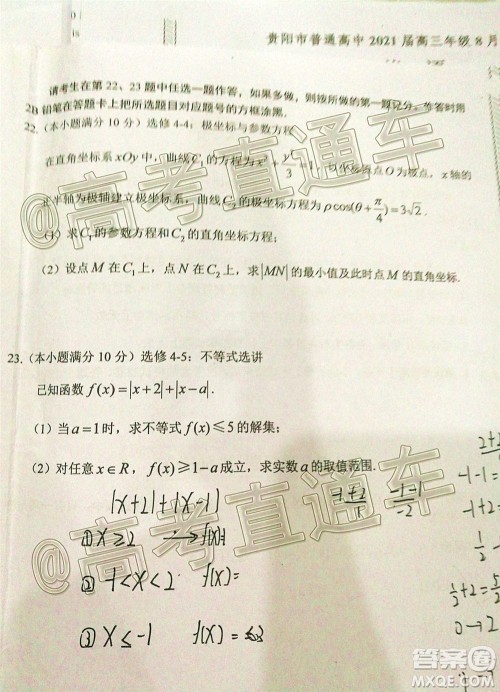 贵阳市普通高中 2021 届高三年级 8 月
请考生在第 22、23 题中任选一题作答，如果多做，则按所做的第一题记分，作答时用
2B 铅笔在答题卡上把所选题目对应题号的方框涂黑.
22.（本小题满分 10 分）选修 4-4：极坐标与参数方程
在直角坐标系 xOy 中，曲线 C₁ 的方程为 x² + y²/3 = 1，以坐标原点 O 为极点，x 轴的
正半轴为极轴建立极坐标系，曲线 C₂ 的极坐标方程为 ρcos(θ+π/4)=3√2.
（1）求 C₁ 的参数方程和 C₂ 的直角坐标方程；
（2）设点 M 在 C₁ 上，点 N 在 C₂ 上，求|MN|的最小值及此时点 M 的直角坐标.
23.（本小题满分 10 分）选修 4-5：不等式选讲
已知函数 f(x)=|x+2|+|x-a|.
（1）当 a=1 时，求不等式 f(x)≤5 的解集；
（2）对任意 x∈R，f(x)≥1-a 成立，求实数 a 的取值范围.
|x+2|+|x-1|
① x≥2 → f(x)
② -1<x<2 f(x)=
③ x≤-1 f(x)=
-1-1
-2
-1-1=
-1+2=
1/2
1/2+2=5/2
0→2
@高考直通车
@高考直通车
答案圈
MXQE.COM